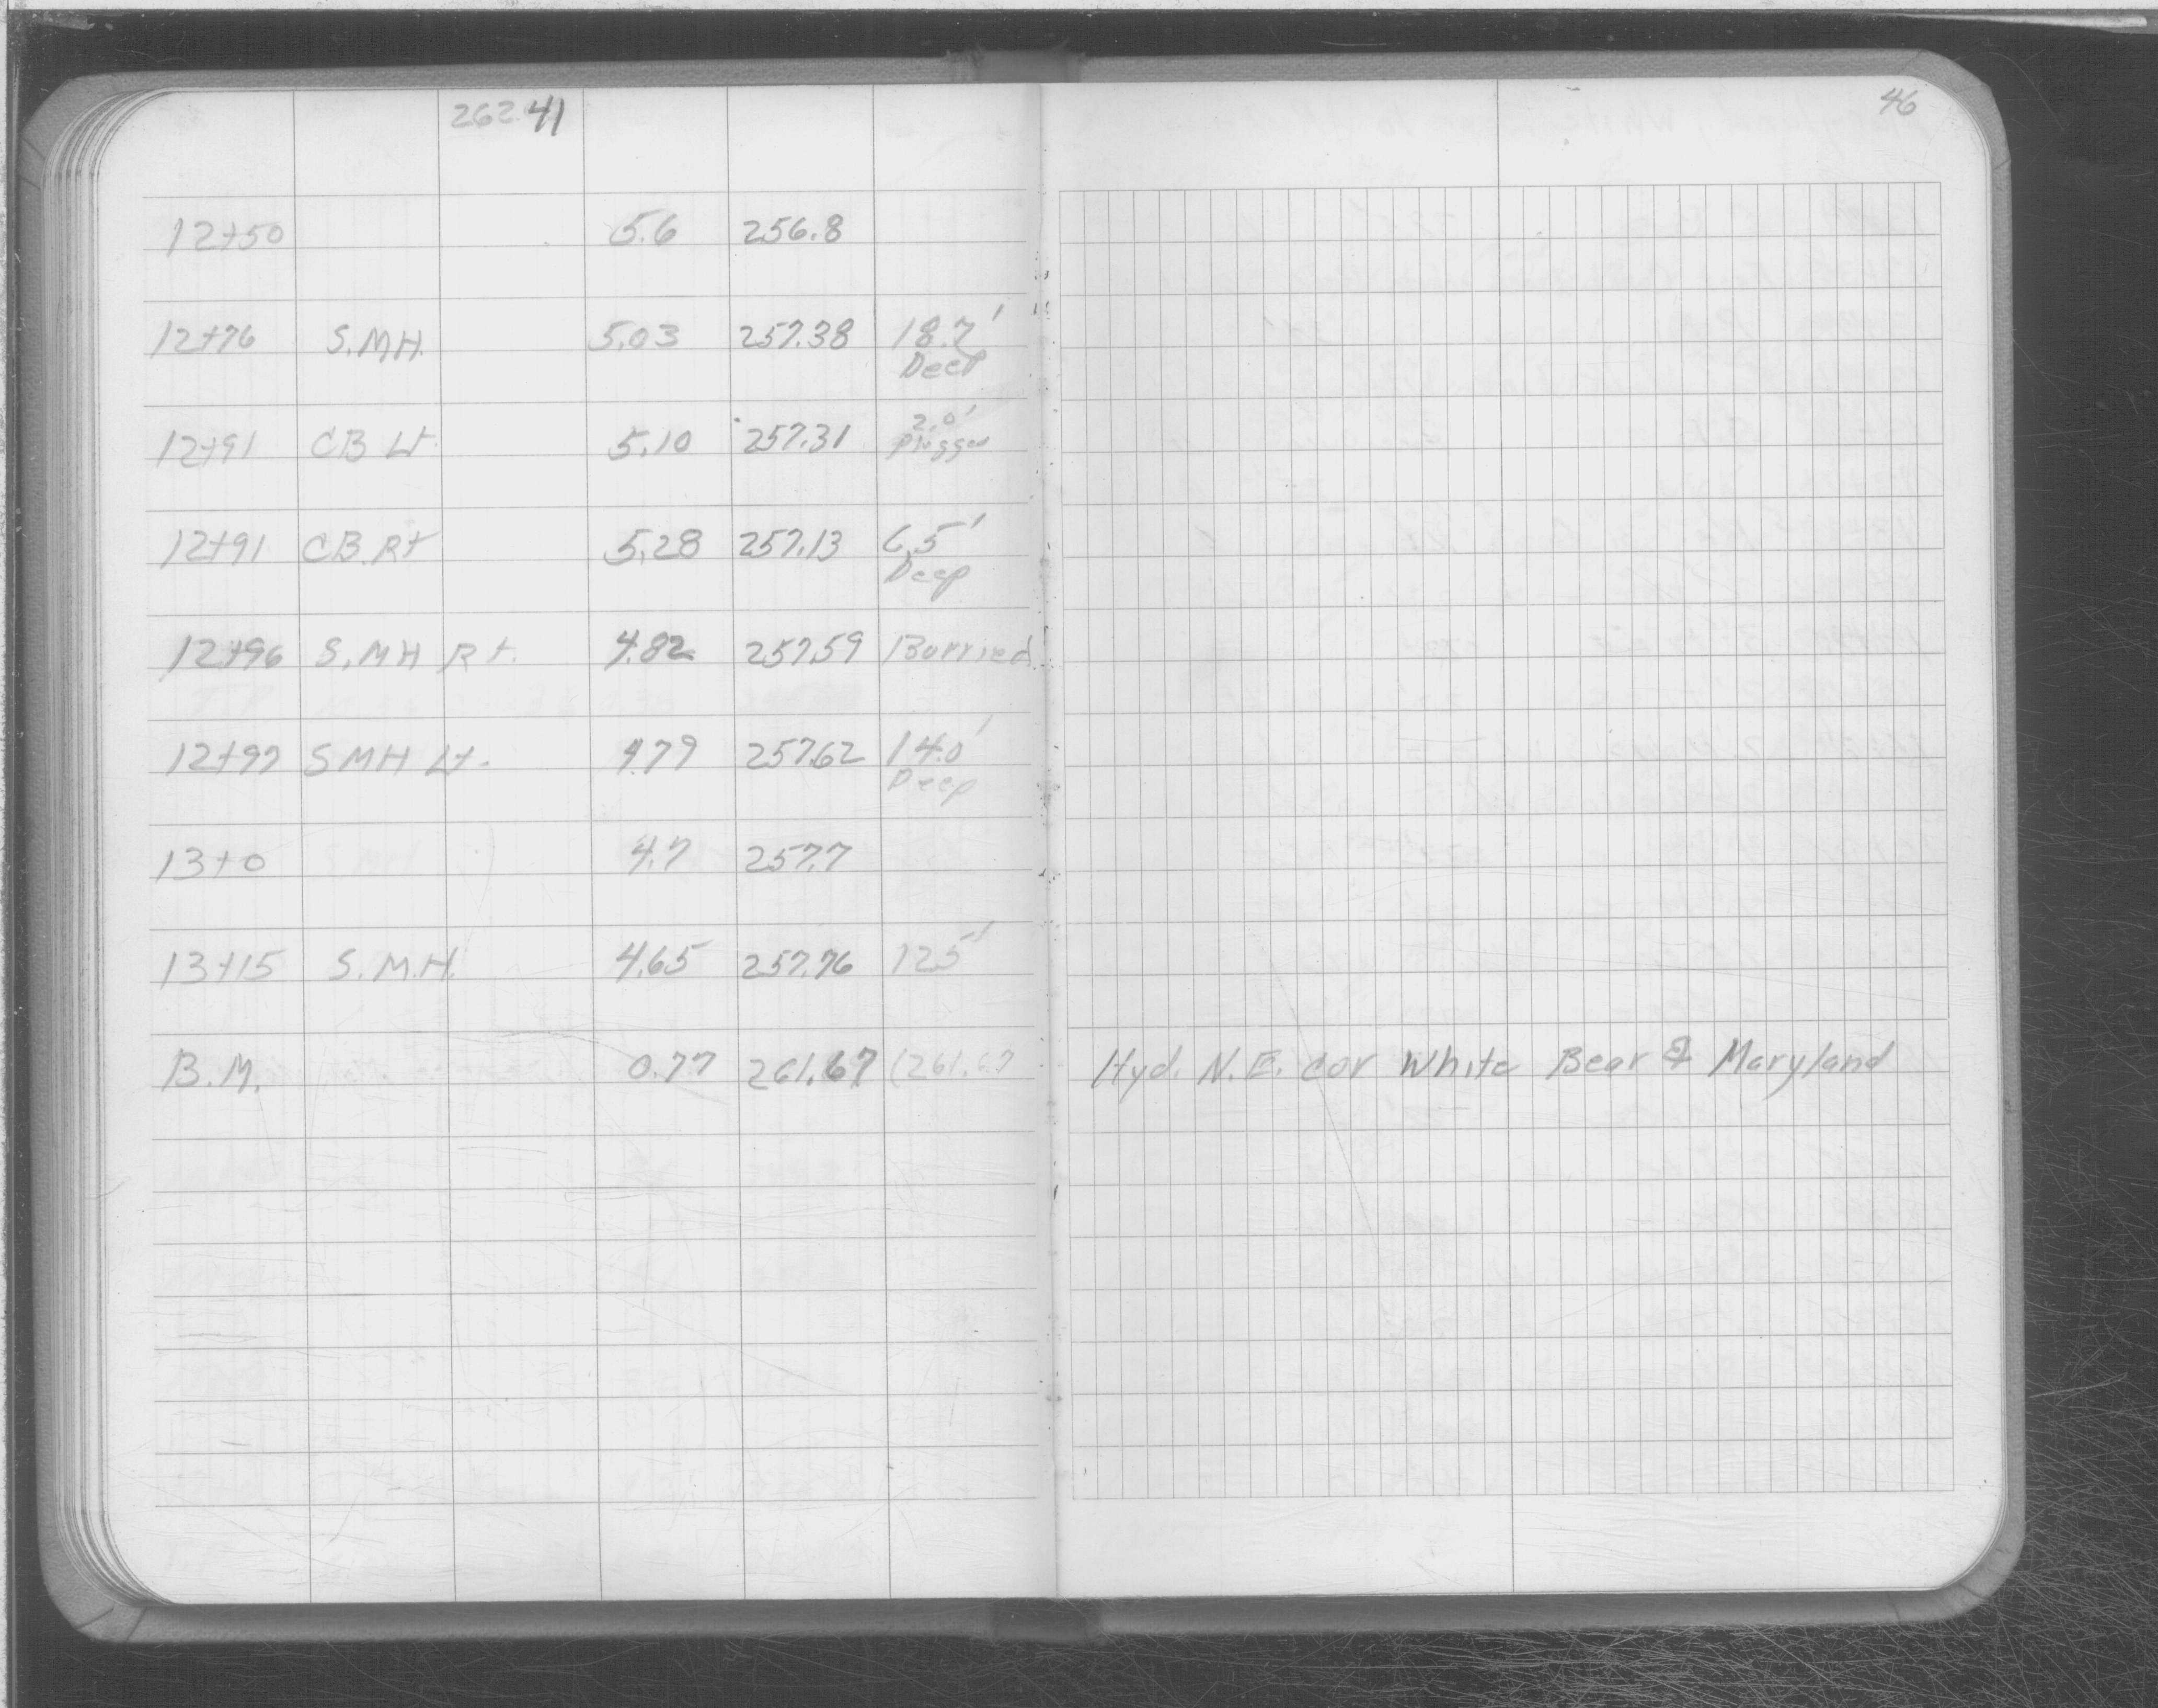 262.41
46
12+50 5.6 256.8
12+76 S.MH. 5.03 257.38 18.7'
Deep
2.0'
12+91 CB Lt. 5.10 257.31 Plugged
12+91 CB.Rt 5.28 257.13 6.5'
Deep
12+96 S.MH Rt. 4.82 257.59 Burried
12+97 SMH Lt. 4.79 257.62 14.0'
Deep
13+0 4.7 257.7
13+15 S.M.H. 4.65 257.76 12.5'
B.M. 0.77 261.67 (261.67 Hyd. N.E. cor White Bear & Maryland